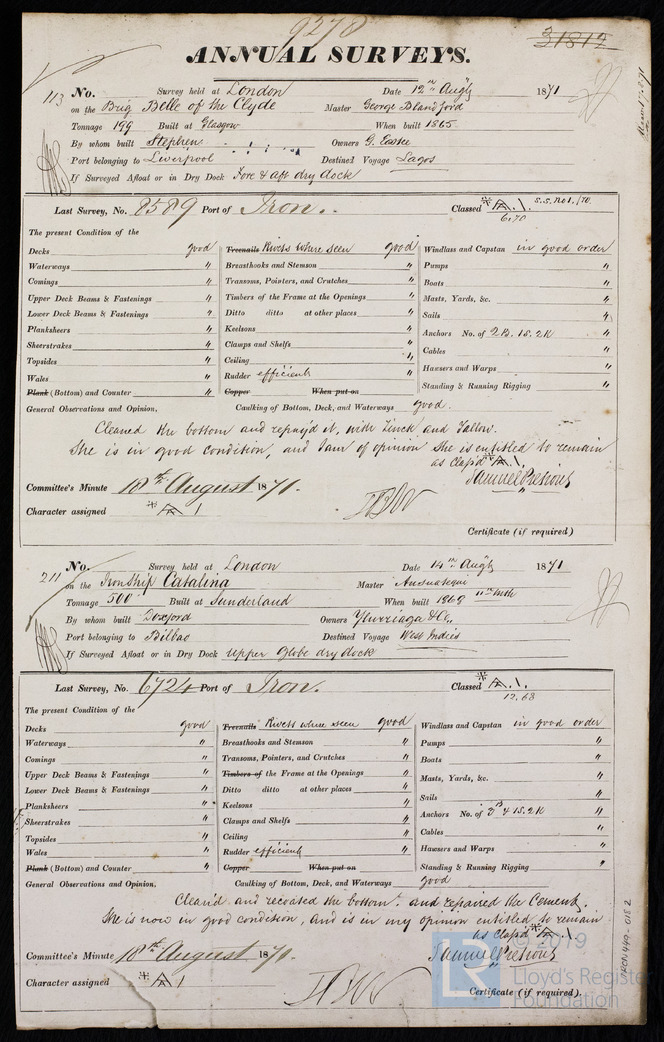 9278
31817
ANNUAL SURVEYS.
113 No. Survey held at London Date 12th Augt 1871
on the Brig Belle of the Clyde Master George Blandford
Tonnage 199 Built at Glasgow When built 1865
By whom built Stephen Owners G. Eastee
Port belonging to Liverpool Destined Voyage Lagos
If Surveyed Afloat or in Dry Dock Fore & aft dry dock
Last Survey, No. 8589 Port of Iron. Classed *A.1. S.S. No1./70
6,70
The present Condition of the
Decks good Treenails Rivets where seen good Windlass and Capstan in good order
Waterways " Breasthooks and Stemson " Pumps "
Comings " Transoms, Pointers, and Crutches " Boats "
Upper Deck Beams & Fastenings " Timbers of the Frame at the Openings " Masts, Yards, &c. "
Lower Deck Beams & Fastenings " Ditto ditto at other places " Sails "
Planksheers " Keelsons " Anchors No. of 2B. 1S. 2K "
Sheerstrakes " Clamps and Shelfs " Cables "
Topsides " Ceiling " Hawsers and Warps "
Wales " Rudder efficient " Standing & Running Rigging "
Plank (Bottom) and Counter " Copper When put on
General Observations and Opinion, Caulking of Bottom, Deck, and Waterways good.
Cleaned the bottom and repay'd it, with Zinck and Tallow.
She is in good condition, and I am of opinion she is entitled to remain
as Class'd *A.1.
Committee's Minute 18th August 1871.
Character assigned *A.1
Certificate (if required)
211 No. Survey held at London Date 14th Augt 1871
on the Iron Ship Catalina Master
Tonnage 500 Built at Sunderland When built 1868 11th Mth
By whom built Doxford Owners Yturriaga & Co.,
Port belonging to Bilbao Destined Voyage West Indies
If Surveyed Afloat or in Dry Dock upper Globe dry dock
Last Survey, No. 6724 Port of Iron. Classed *A.1.
12.68
The present Condition of the
Decks good Treenails Rivets where seen good Windlass and Capstan in good order
Waterways " Breasthooks and Stemson " Pumps "
Comings " Transoms, Pointers, and Crutches " Boats "
Upper Deck Beams & Fastenings " Timbers of the Frame at the Openings " Masts, Yards, &c. "
Lower Deck Beams & Fastenings " Ditto ditto at other places " Sails "
Planksheers " Keelsons " Anchors No. of 3B & 1S. 2K "
Sheerstrakes " Clamps and Shelfs " Cables "
Topsides " Ceiling " Hawsers and Warps "
Wales " Rudder efficient " Standing & Running Rigging "
Plank (Bottom) and Counter " Copper When put on
General Observations and Opinion, Caulking of Bottom, Deck, and Waterways good
Clean'd and recoated the bottom. and repaired the Cement.
She is now in good condition, and is in my opinion entitled to remain
as Class'd *A.1.
Committee's Minute 18th August 1871.
Character assigned *A.1
Certificate (if required).
IRON 440-0182
© 2019
Lloyd's Register
Foundation